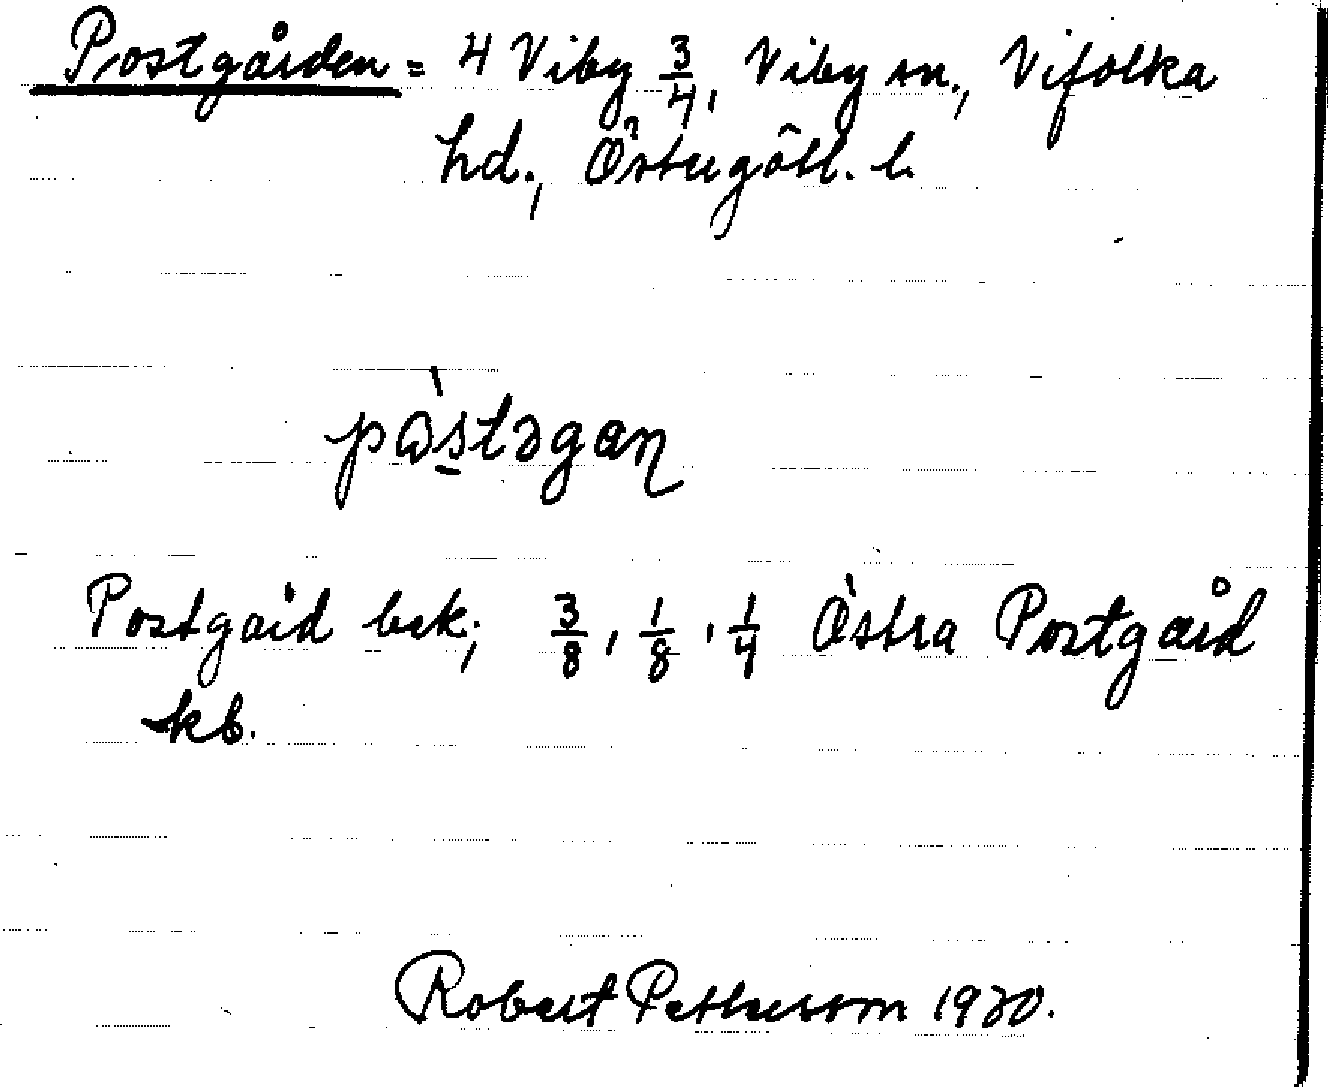 Postgården = 4 Viby 3/4, Viby sn., Vifolka
hd., Östergötl. l.
pòstəgan
Postgård bek; 3/8, 1/8, 1/4 Östra Postgård
kb.
Robert Petterson 1930.